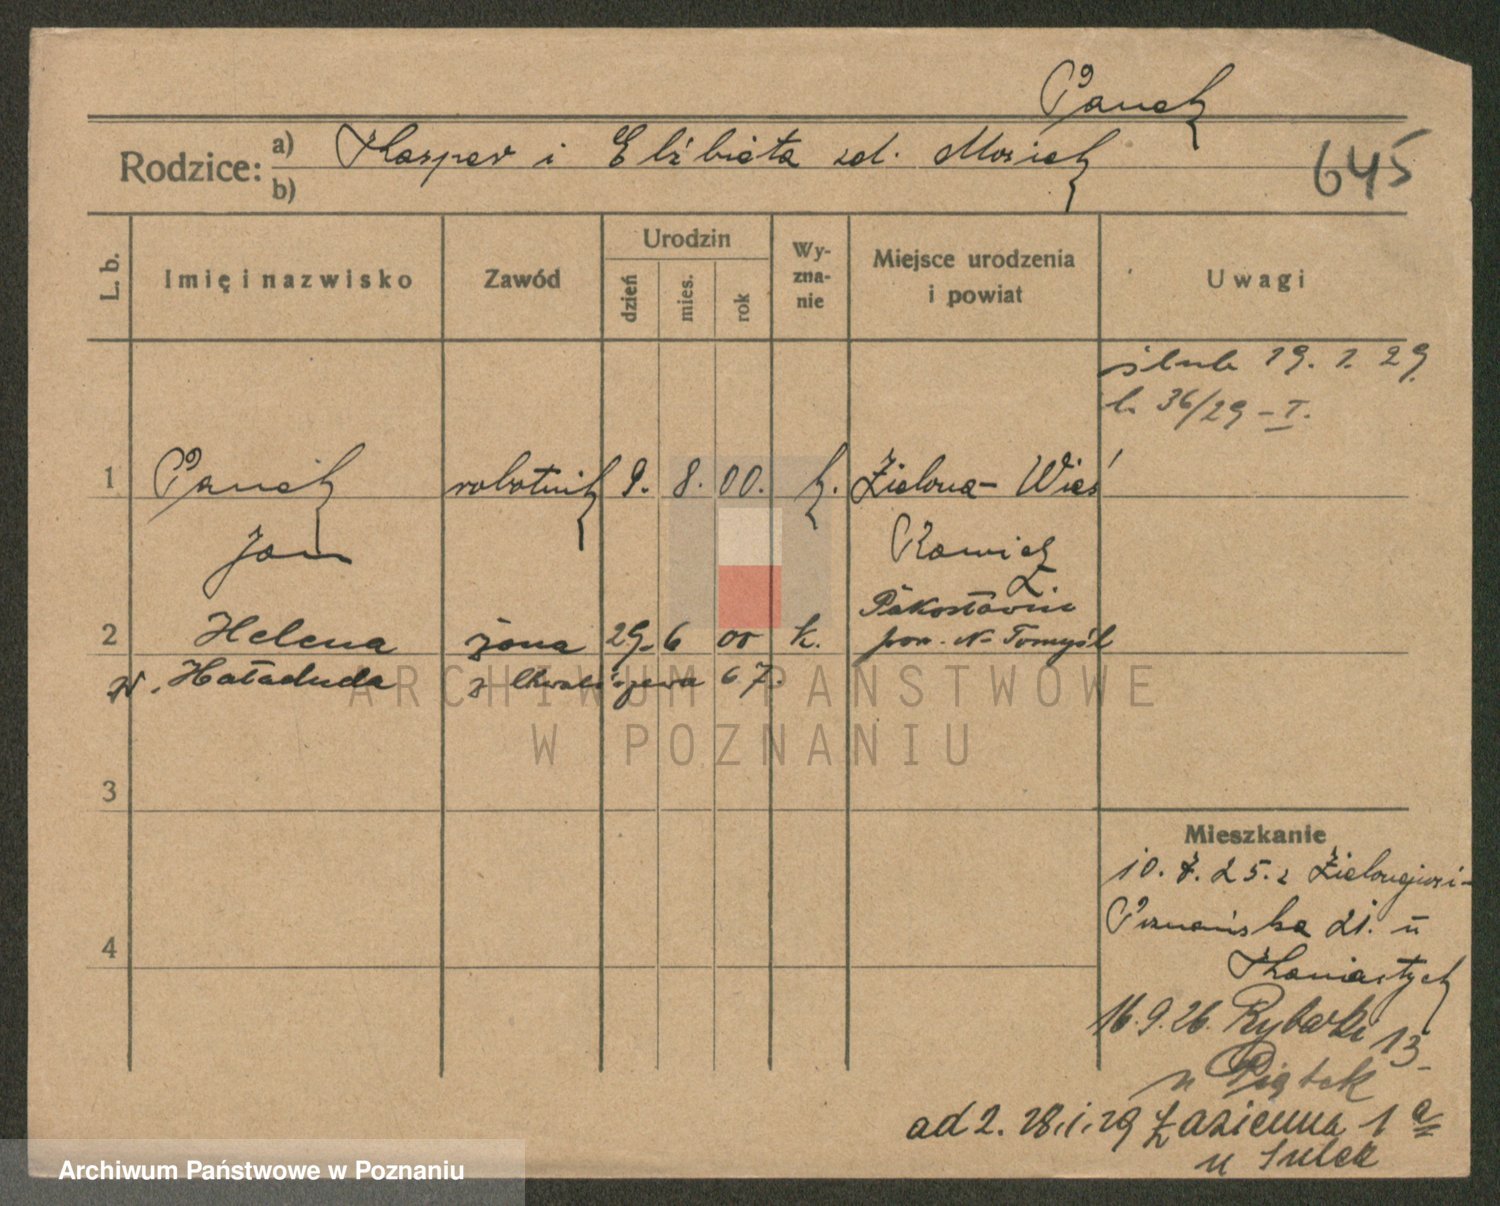 Panek
Rodzice:
a) Kasper i Elżbieta zd. Mosiek
b)
645
L. b.
Imię i nazwisko
Zawód
Urodzin
dzień
mies.
rok
Wy-
zna-
nie
Miejsce urodzenia
i powiat
Uwagi
ślub 19. 1. 29.
l. 36/29 - I.
1 Panek robotnik 9. 8. 00. k. Zielona-Wieś
Jan Rawicz
Pakosławie
2 Helena żona 29. 6 00 k. pow. N-Tomyśl
Hataduda z Chwaliszewa 67.
ARCHIWUM PAŃSTWOWE
W POZNANIU
3
Mieszkanie
10. 7. 25. z Zielonejwsi-
4 Poznańska 21. u
16. 9. 26. Rybaki 13
u Piątek
ad 2. 28.1.29 Łazienna 1a
u
Archiwum Państwowe w Poznaniu